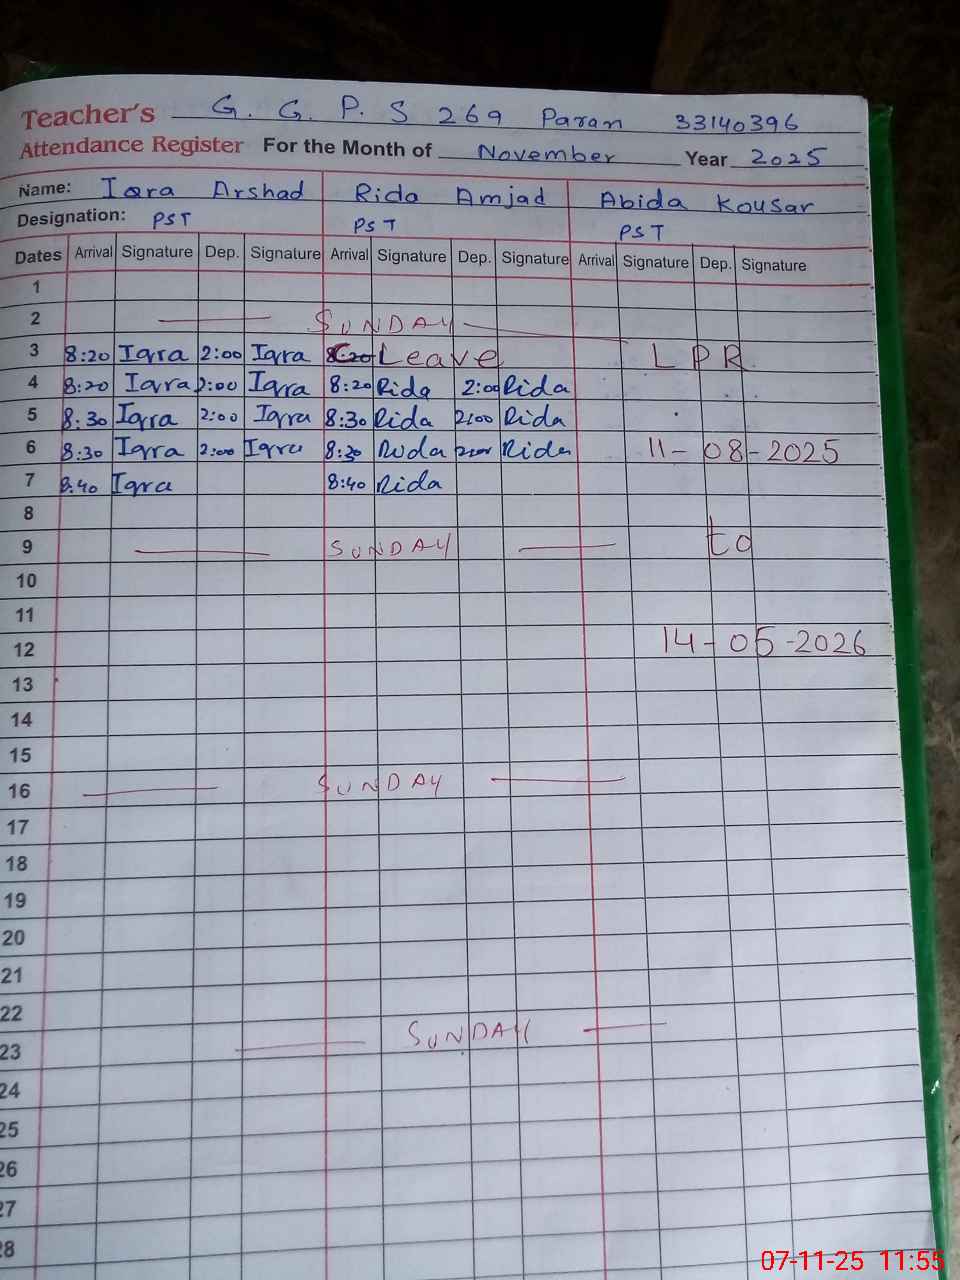 Teacher's G. G. P. S 269 Paran 33140396
Attendance Register For the Month of November Year 2025
Name: Iqra Arshad Rida Amjad Abida Kousar
Designation: PST PST PST
Dates Arrival Signature Dep. Signature Arrival Signature Dep. Signature Arrival Signature Dep. Signature
1
2 SUNDAY
3 8:20 Iqra 2:00 Iqra C-Leave LPR
4 8:20 Iqra 2:00 Iqra 8:20 Rida 2:00 Rida
5 8:30 Iqra 2:00 Iqra 8:30 Rida 2:00 Rida
6 8:30 Iqra 2:00 Iqra 8:30 Rida 2:00 Rida 11-08-2025
7 8:40 Iqra 8:40 Rida
8
9 SUNDAY to
10
11
12 14-05-2026
13
14
15
16 SUNDAY
17
18
19
20
21
22
23 SUNDAY
24
25
26
27
28
07-11-25 11:55